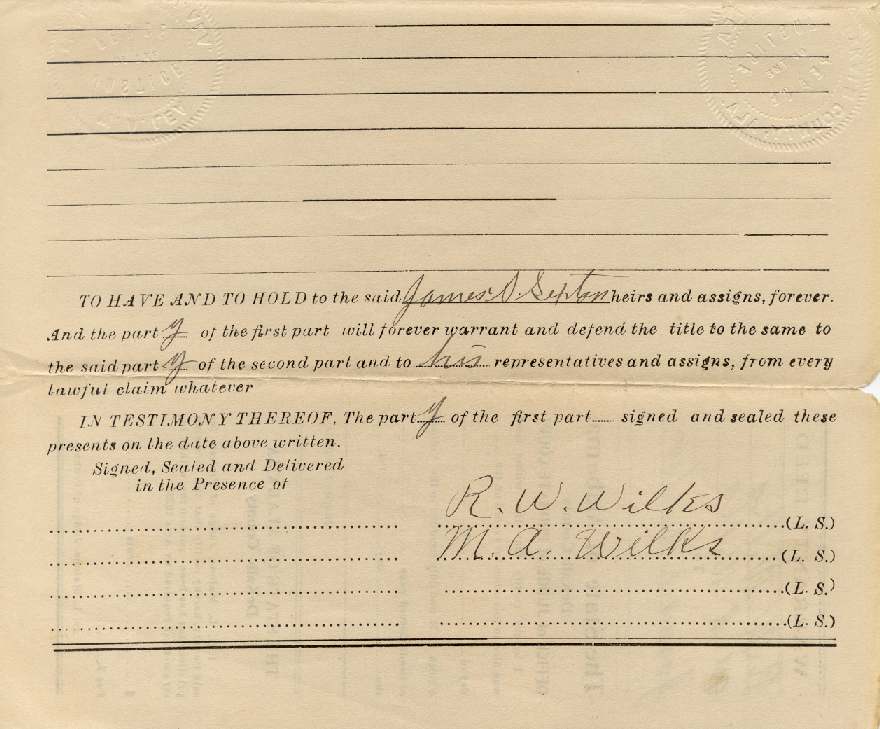 TO HAVE AND TO HOLD to the said James D. Sexton heirs and assigns, forever.
And the part y of the first part will forever warrant and defend the title to the same to
the said part y of the second part and to his representatives and assigns, from every
lawful claim whatever
IN TESTIMONY THEREOF, The part y of the first part signed and sealed these
presents on the date above written.
Signed, Sealed and Delivered
in the Presence of
R. W. Wilks (L. S.)
M. A. Wilks (L. S.)
(L. S.)
(L. S.)